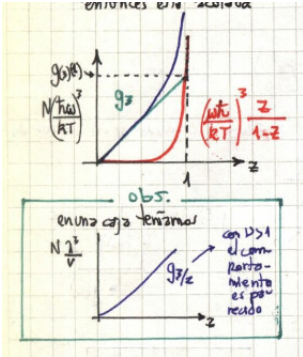 entonces era
g₃(1)
N(ħω/kT)³
g₃
(ωħ/kT)³ z/1-z
z
1
obs.
en una caja teníamos
N λ³/V
g₃/₂
z
con ν>1
el com-
porta-
miento
es pa-
recido